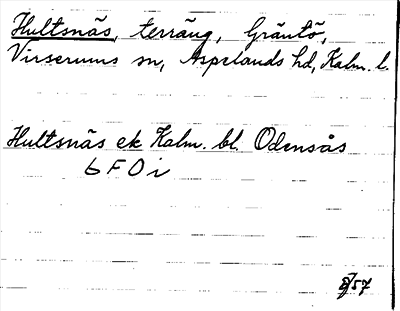 Hultsnäs, terräng, Gräntö,
Virserums sn, Aspelands hd, Kalm. l.
Hultsnäs ek Kalm. bl. Odensås
6 F 0 i
57